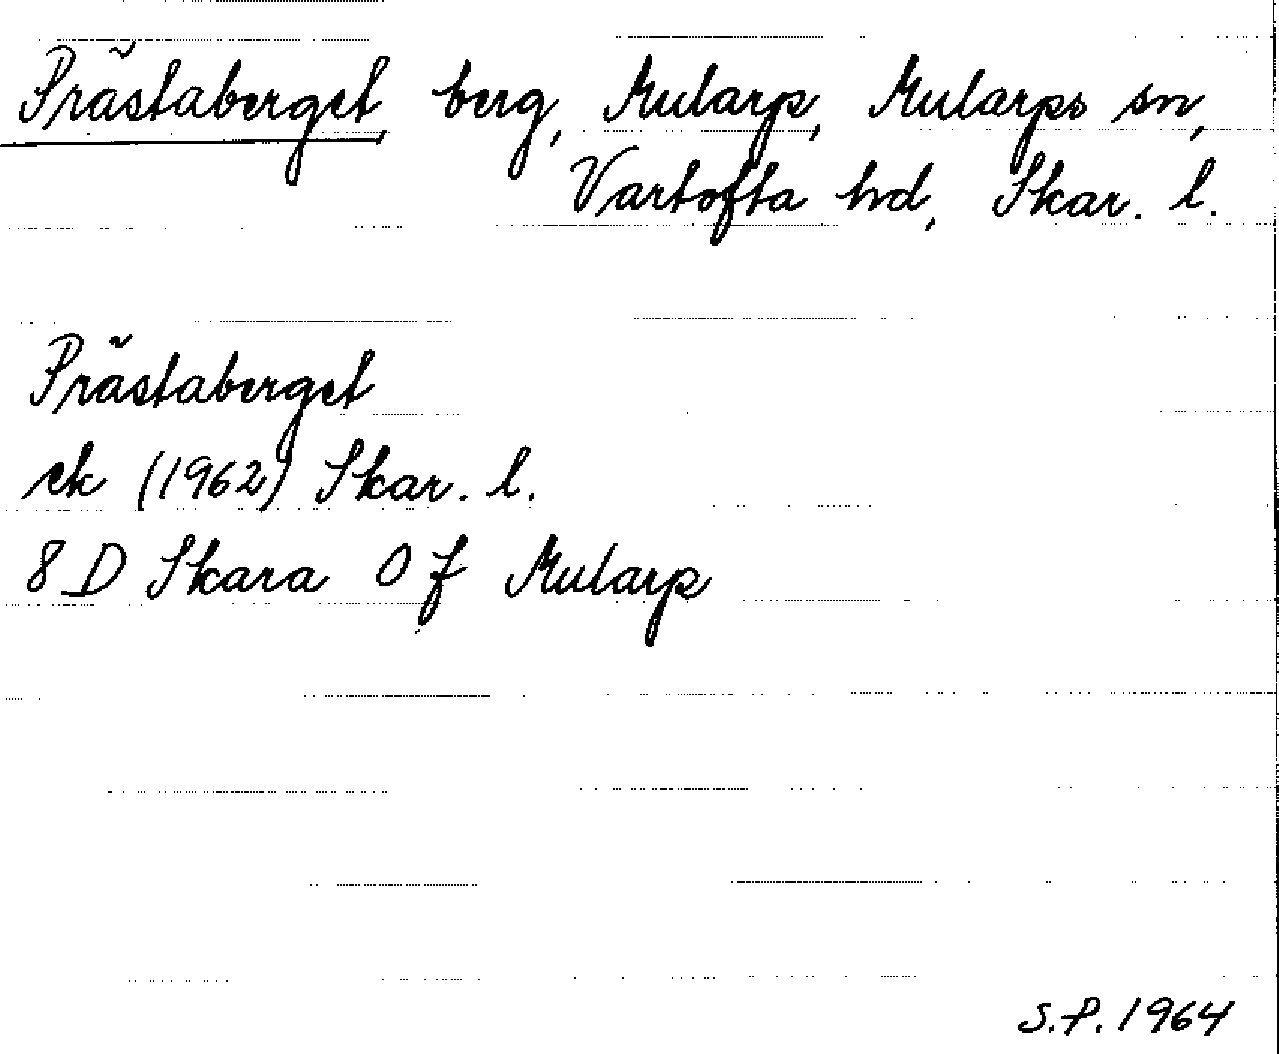 Prästaberget, berg, Mularp, Mularps sn,
Vartofta hd, Skar. l.
Prästaberget
ek (1962) Skar. l.
8 D Skara 0 f Mularp
S.P. 1964